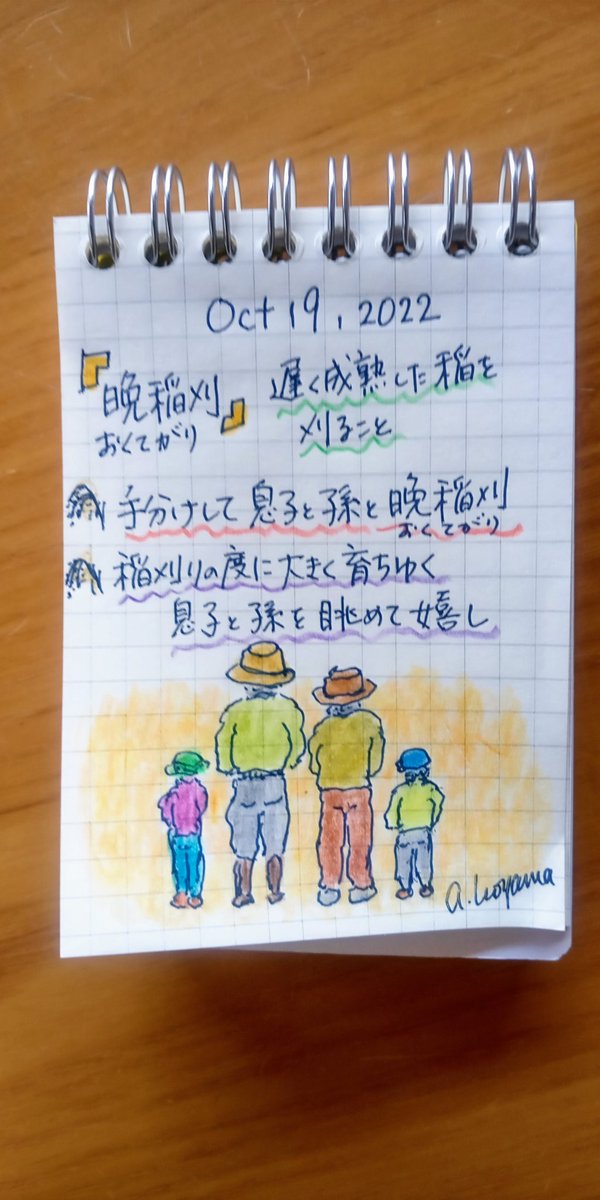 Oct 19, 2022
『晩稲刈』
おくてがり
遅く成熟した稲を
刈ること
手分けして息子と孫と晩稲刈
おくてがり
稲刈りの度に大きく育ちゆく
息子と孫を眺めて嬉し